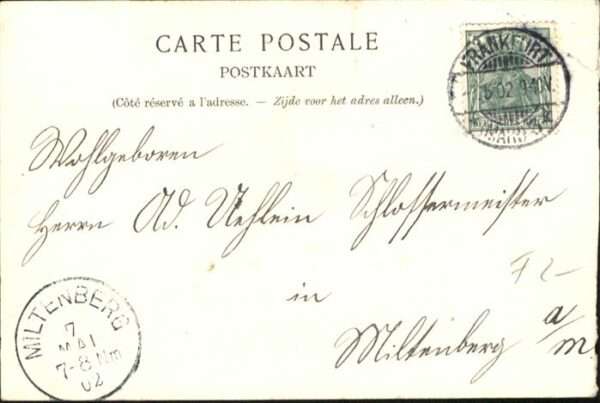 CARTE POSTALE
POSTKAART
(Côté réservé a l'adresse. — Zijde voor het adres alleen.)
FRANKFURT
5.02. 9-10N
(MAIN)
Wohlgeboren
Herrn Ad. Uehlein Schlossermeister
in
Miltenberg a/m
MILTENBERG
7
MAI
7-8 Nm
02